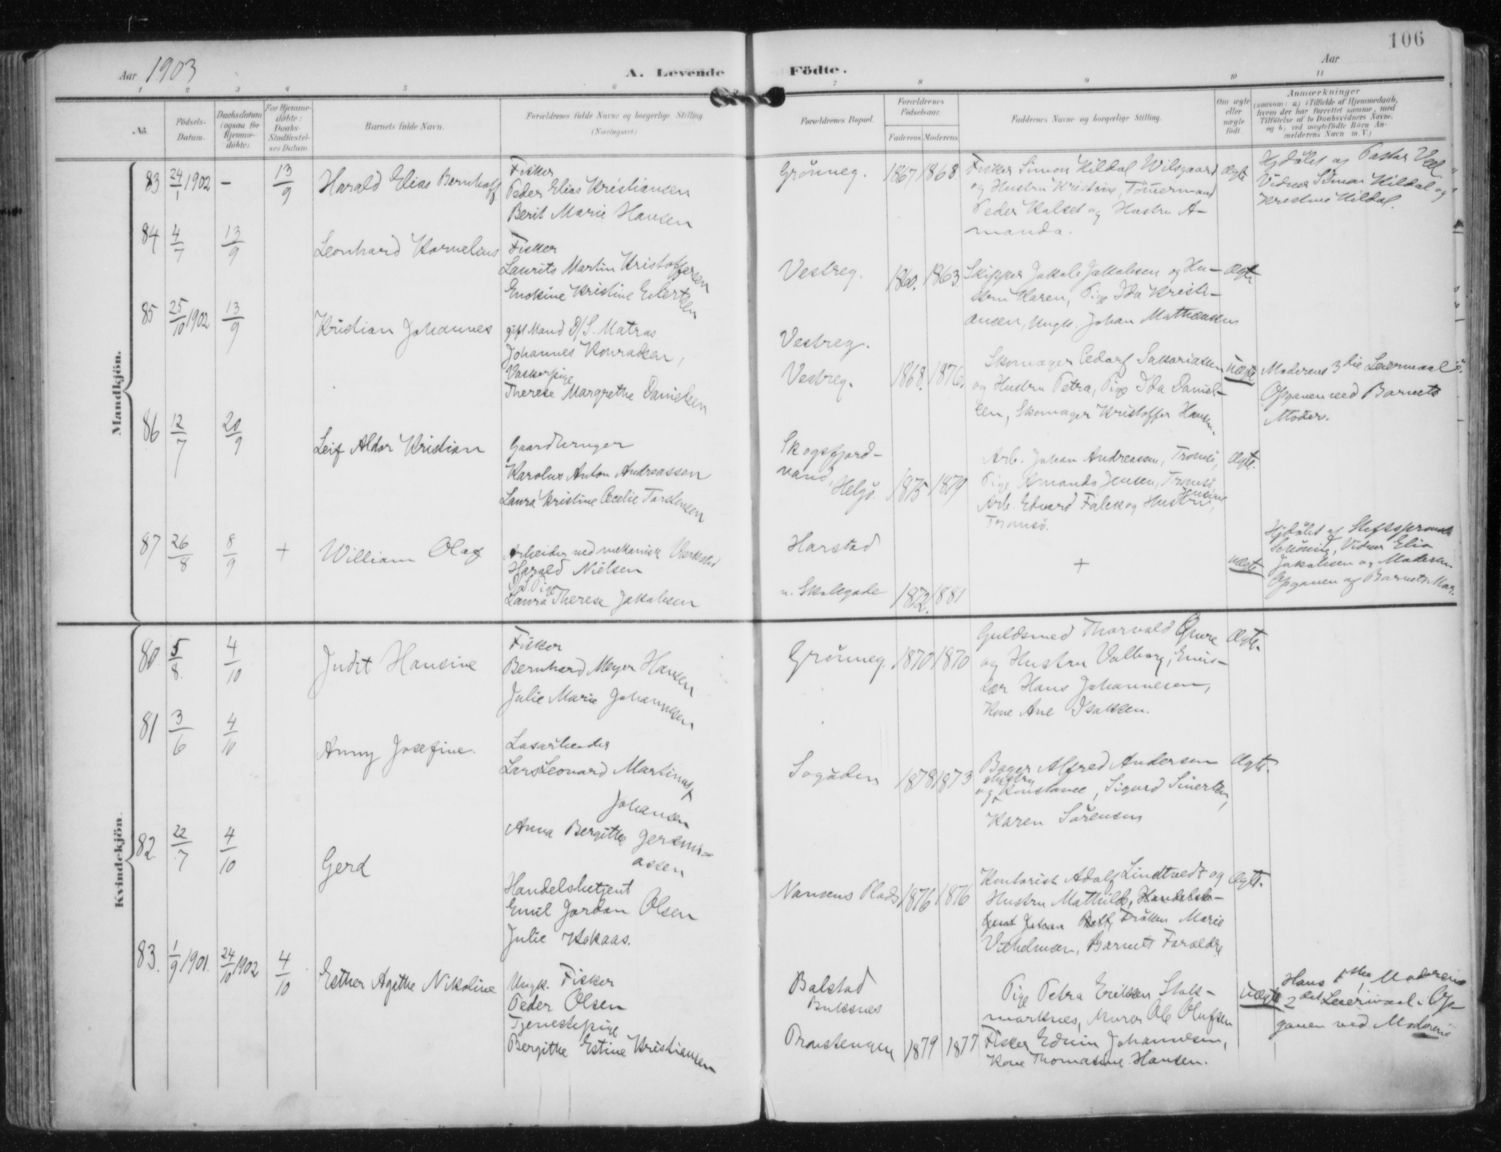 106
Aar 1903
A. Levende Födte.
Aar
1 2 3 4 5 6 7 8 9 10 11
No.
Födsels-Datum.
Daabsdatum (ogsaa for Hjemme-döbte).
For Hjemme-döbte: Daabs-Stadfæstel-ses Datum.
Barnets fulde Navn.
Forældrenes fulde Navne og borgerlige Stilling
Forældrenes Bopæl.
Forældrenes Födselsaar.
Faderens Moderens
Faddernes Navne og borgerlig Stilling.
Om ægte eller uægte födt.
Anmærkninger
Mandkjön.
83 24/1 1902 – 13/9 Harald Elias Bernhoff
Fisker
Peder Elias Kristiansen
Berit Marie Hansen
Grønneg. 1867 1868
Fisker Simon Kildal Wilsgaard
og Hustru Kristine, Tømermand
Peder Kalset og Hustru A-
manda.
Ægte
Hjdøbt af Pastor
Vidner Simon Kildal og
Kristine Kildal.
84 4/7 13/9 Leonhard Kornelius
Fisker
Laurits Martin Kristoffersen
Enokine Kristine Evertsen
Vestreg. 1860. 1863
Skipper Jakob Jakobsen og Hu-
stru Karen, Pige Ida Kristi-
ansen, Ungk. Johan Mathiassen
Ægte
85 25/10 1902 13/9 Kristian Johannes
gift Mand D/S. Matros
Johannes Konradsen,
Vaskerpige
Therese Margrethe Danielsen
Vestreg.
Vestreg. 1868. 1876
Skomager Edvard Sakariassen
og Hustru Petra, Pige Ida Daniel-
sen, Skomager Kristoffer Hansen.
Uægte
Moderens 3die Leiermaal
Opgaven ved Barnets
Moder.
86 12/7 20/9 Leif Aldor Kristian
Gaardbruger
Karolus Anton Andreassen
Laura Kristine Cecelie Torstensen
Skogsfjord-
vand, Helgø. 1875 1879
Arb. Johan Andreasen, Tromsø,
Pige Amanda Jensen, Tromsø,
Arb. Edvard Falck og Hustru Hansine,
Tromsø.
Ægte.
87 26/8 8/9 + William Olaf
Arbeider ved mekanisk Værksted
Harald Nielsen
D/S. Pige
Laura Therese Jakobsen
Harstad
n. Skolegade 1872. 1881
+
Uægte
Hjdøbt af Stiftsprovst
Vidner Elia
Jakobsen og Moderen
Opgaven af Barnets Mor.
Kvindekjön.
80. 5/8 4/10 Judit Hansine
Fisker
Bernhard Meyer Hansen
Julie Marie Johannesen
Grønneg. 1870 1870
Guldsmed Thorvald
og Hustru Valborg, Emis-
sær Hans Johannesen,
Kone Ane Isaksen.
Ægte.
81 3/6 4/10 Anny Josefine.
Løsarbeider
Lars Leonard Martinus
Johansen
Anna Bergitte Jeremi-
assen
Søgaden 1878 1873
Bager Alfred Andersen
og Hustru Konstance, Sigurd Sivertsen,
Karen Sørensen
Ægte.
82. 22/7 4/10 Gerd
Handelsbetjent
Emil Jordan Olsen
Julie Hokaas.
Nansens Plads 1876 1876
Kontorist Adolf Lindtvedt og
Hustru Mathilde, Handelsbe-
tjent Johan Frøken Marie
Barnets Forældre
Ægte.
83. 1/9 1901. 24/10 1902 4/10 Esther Agithe Nikoline
Ungk. Fisker
Peder Olsen
Tjenestepige
Bergithe Estine Kristiansen
Balstad
Buksnes
Provstengen 1879 1877
Pige Petra Eriksen Stok-
marknes, Murer Ole Olufsen
Fisker Edvin Johannesen,
Kone Thomasine Hansen.
Uægte
Hans 1ste, Moderens
2det Leiermaal. Op-
gaven ved Moderen